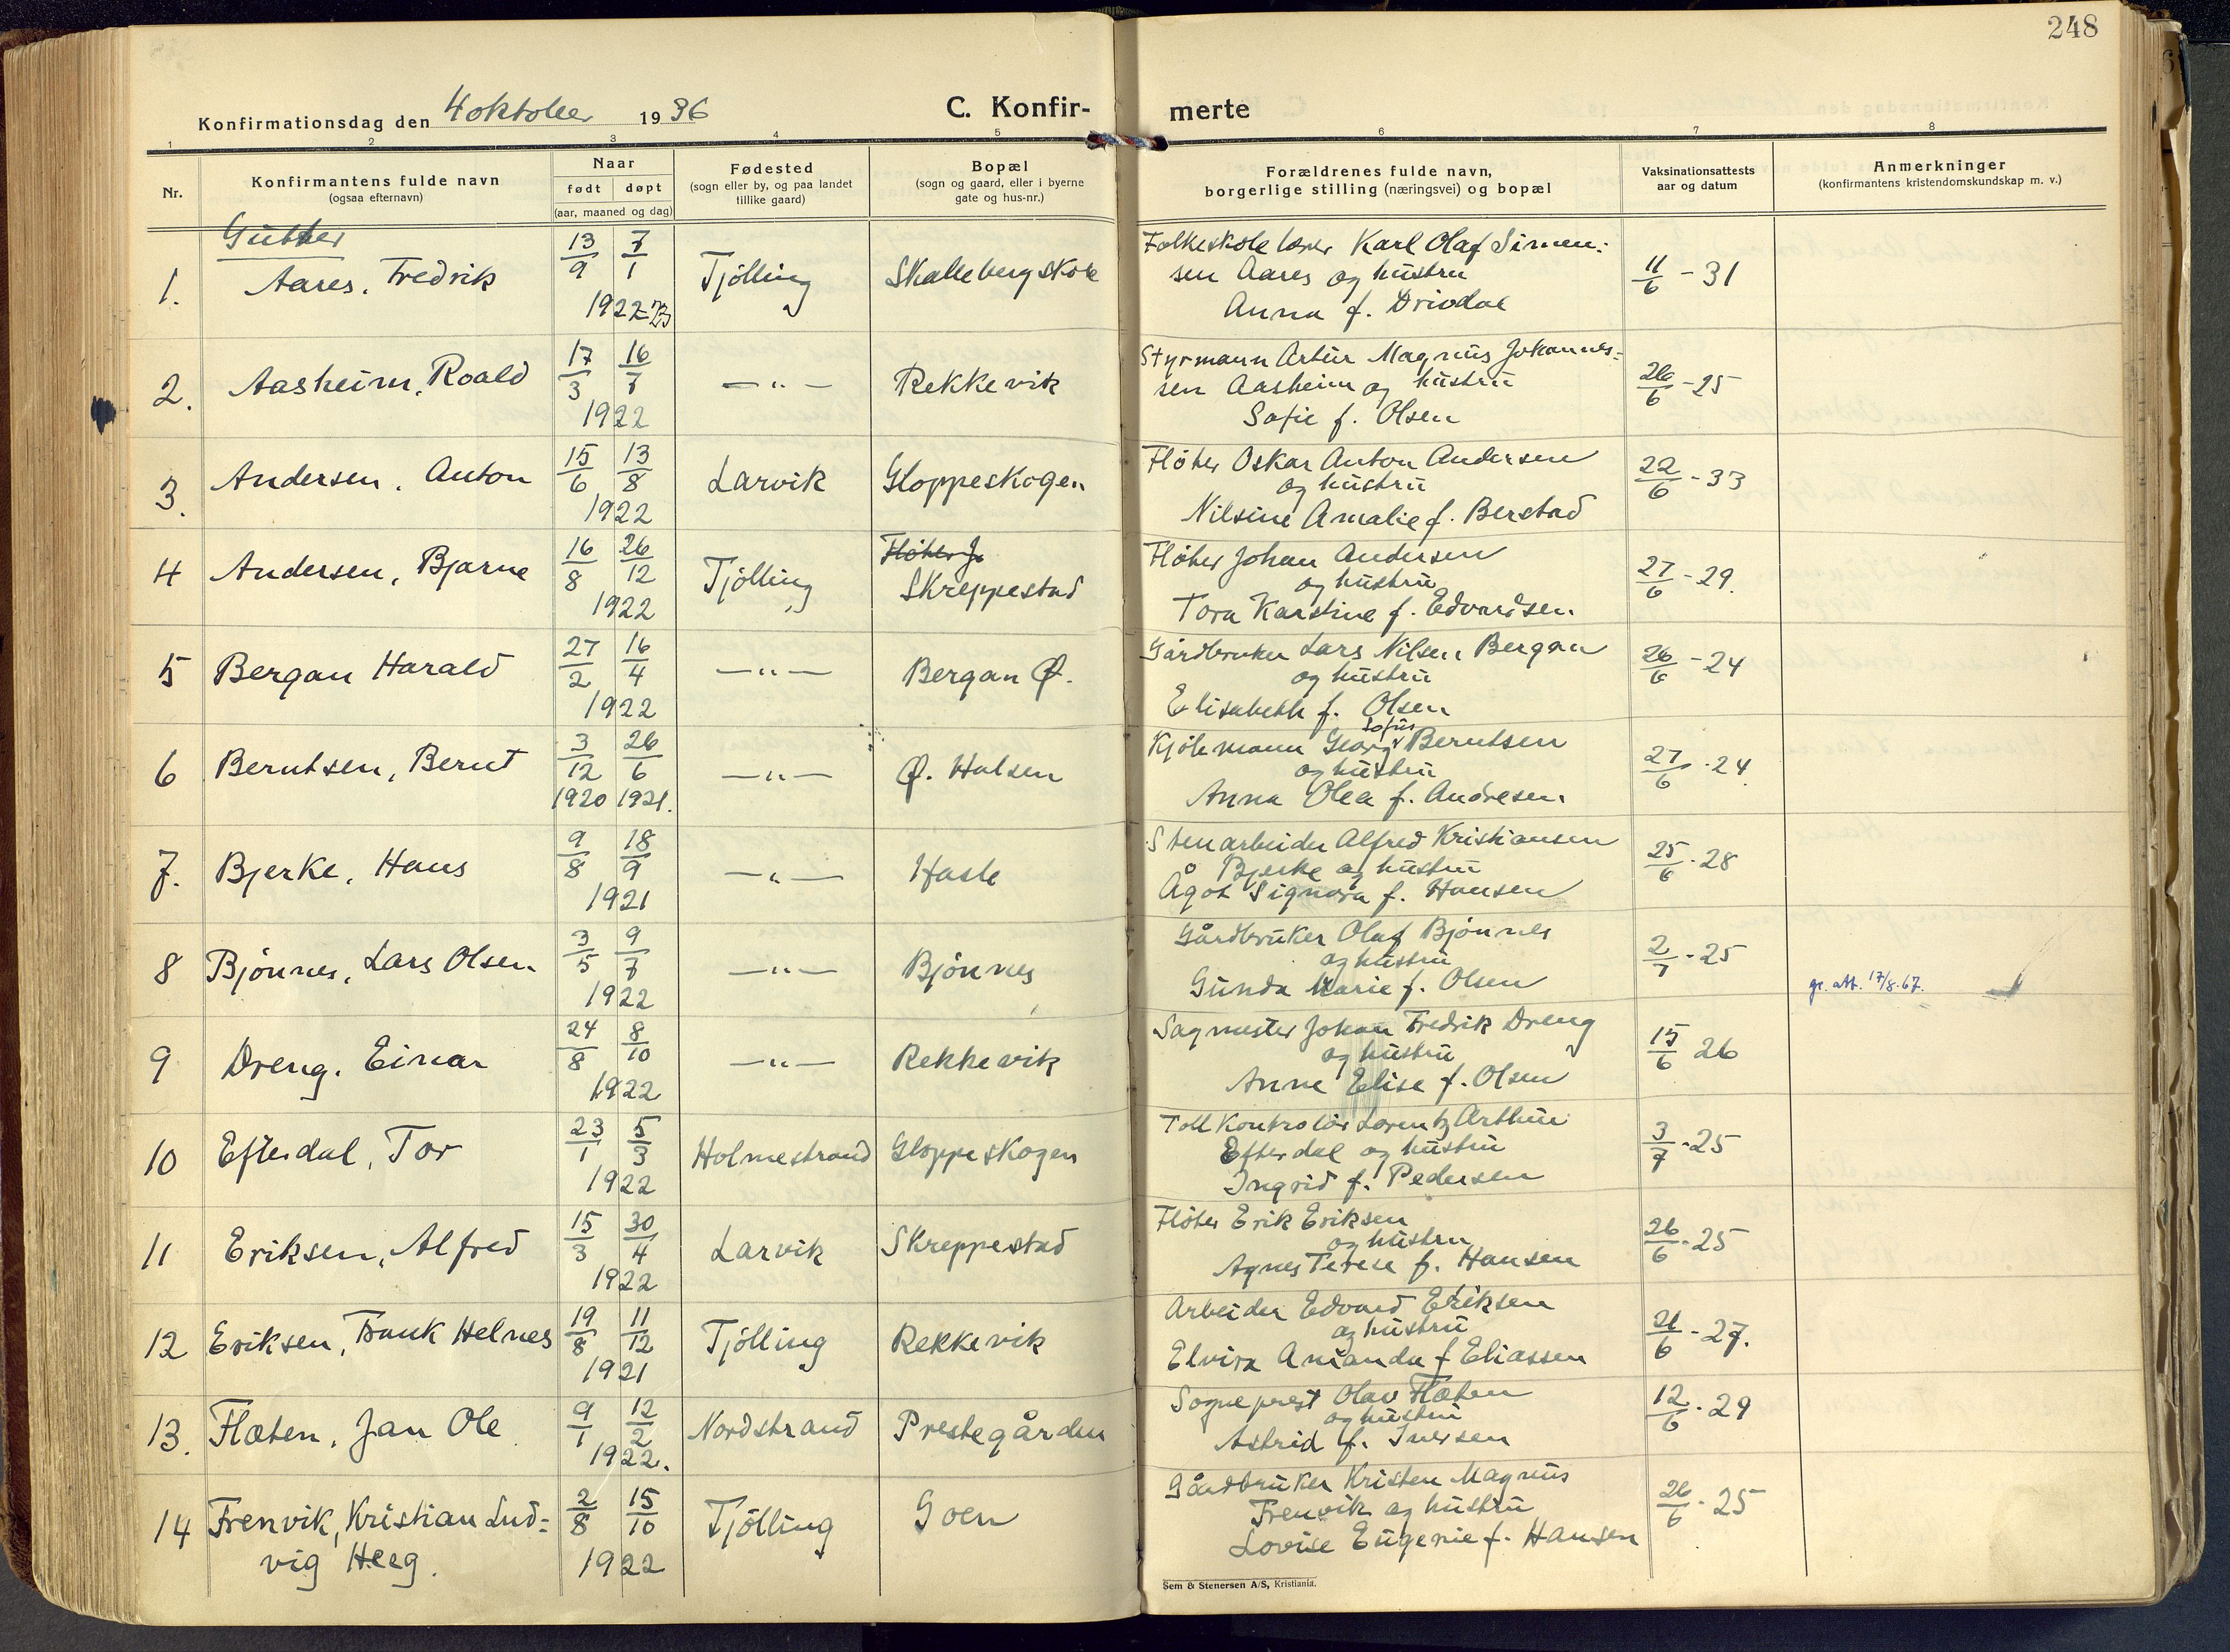 248
Konfirmationsdag den 4 oktober 1936
C. Konfir-
merte
1 2 3 4 5 6 7 8
Nr.
Konfirmantens fulde navn
(ogsaa efternavn)
Naar
født døpt
(aar, maaned og dag)
Fødested
(sogn eller by, og paa landet
tillike gaard)
Bopæl
(sogn og gaard, eller i byerne
gate og hus-nr.)
Forældrenes fulde navn,
borgerlige stilling (næringsvei) og bopæl
Vaksinationsattests
aar og datum
Anmerkninger
(konfirmantens kristendomskundskap m. v.)
Gutter
1. Aares, Fredrik 13/9 7/1 1922-23 Tjölling Skalleberg skole
Folkeskolelærer Karl Olaf Simen-
sen Aares og hustru
Anna f. Drivdal
11/6 - 31
2. Aasheim, Roald 17/3 16/7 1922 — " — Rekkevik
Styrmann Artur Magnus Johannes-
sen Aasheim og hustru
Sofie f. Olsen
26/6 - 25
3. Andersen, Anton 15/6 13/8 1922 Larvik Gloppeskogen
Fløter Oskar Anton Andersen
og hustru
Nilsine Amalie f. Berstad
22/6 - 33
4 Andersen, Bjarne 16/8 26/12 1922 Tjölling
Fløter J.
Skreppestad
Fløter Johan Andersen
og hustru
Tora Karstine f. Edvardsen
27/6 - 29.
5 Bergan Harald 27/2 16/4 1922 — " — Bergan Ø.
Gårdbruker Lars Nilsen Bergan
og hustru
Elisabeth f. Olsen
26/6 - 24
6 Berntsen, Bernt 3/12 1920 26/6 1921. — " — Ø. Halsen
Sofus
Kjölemann Georg Berntsen
og hustru
Anna Olea f. Andresen
27/6 - 24.
7. Bjerke, Hans 9/8 18/9 1921 — " — Hasle
Stenarbeider Alfred Kristiansen
Bjerke og hustru
Ågot Signora f. Hansen
25/6 - 28
8 Bjönnes, Lars Olsen 3/5 9/7 1922 — " — Bjönnes
Gårdbruker Olaf Bjönnes
og hustru
Gunda Marie f. Olsen
2/7 - 25
gr. att. 17/8-67.
9 Dreng, Einar 24/8 8/10 1922 — " — Rekkevik
Sagmester Johan Fredrik Dreng
og hustru
Anne Elise f. Olsen
15/6 26
10 Efterdal, Tor 23/1 5/3 1922 Holmestrand Gloppeskogen
Tollkontrolör Lorentz Arthur
Efterdal og hustru
Ingrid f. Pedersen
3/7 - 25
11 Eriksen, Alfred 15/3 30/4 1922 Larvik Skreppestad
Fløter Erik Eriksen
og hustru
Agnes Terese f. Hansen
26/6 - 25
12 Eriksen, Frank Helnes 19/8 11/12 1921 Tjölling Rekkevik
Arbeider Edvard Eriksen
og hustru
Elvira Amanda f Eliassen
21/6 - 27.
13. Flæten, Jan Ole 9/1 12/2 1922. Nordstrand Prestegården
Sogneprest Olav Flæten
og hustru
Astrid f. Iversen
12/6 - 29
14 Frenvik, Kristian Lud-
vig Heeg. 2/8 15/10 1922 Tjölling Goen
Gårdbruker Kristen Magnus
Frenvik og hustru
Lovise Eugenie f. Hansen
26/6 - 25
Sem & Stenersen A/S, Kristiania.